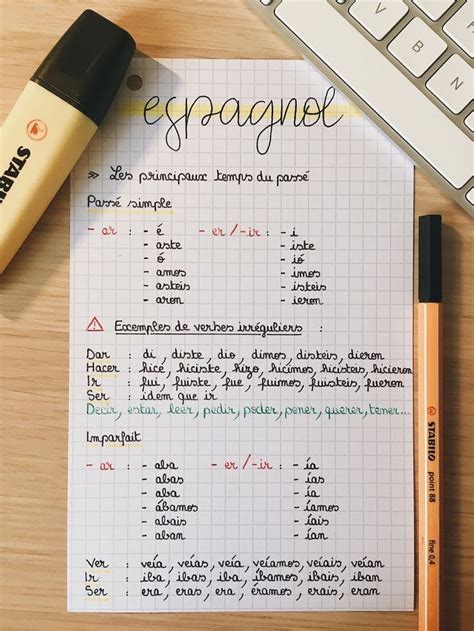 espagnol
» Les principaux temps du passé
Passé simple
- ar : - é - er / -ir : - i
- aste - iste
- ó - ió
- amos - imos
- asteis - isteis
- aron - ieron
⚠ Exemples de verbes irréguliers :
Dar : di, diste, dio, dimos, disteis, dieron
Hacer : hice, hiciste, hizo, hicimos, hicisteis, hicieron
Ir : fui, fuiste, fue, fuimos, fuisteis, fueron
Ser : idem que ir
Decir, estar, leer, pedir, poder, poner, querer, tener...
Imparfait
- ar : - aba - er / -ir : - ía
- abas - ías
- aba - ía
- ábamos - íamos
- abais - íais
- aban - ían
Ver : veía, veías, veía, veíamos, veíais, veían
Ir : iba, ibas, iba, íbamos, ibais, iban
Ser : era, eras, era, éramos, erais, eran
STABILO
STABILO point 88 fine 0,4
C
V
B
N
M